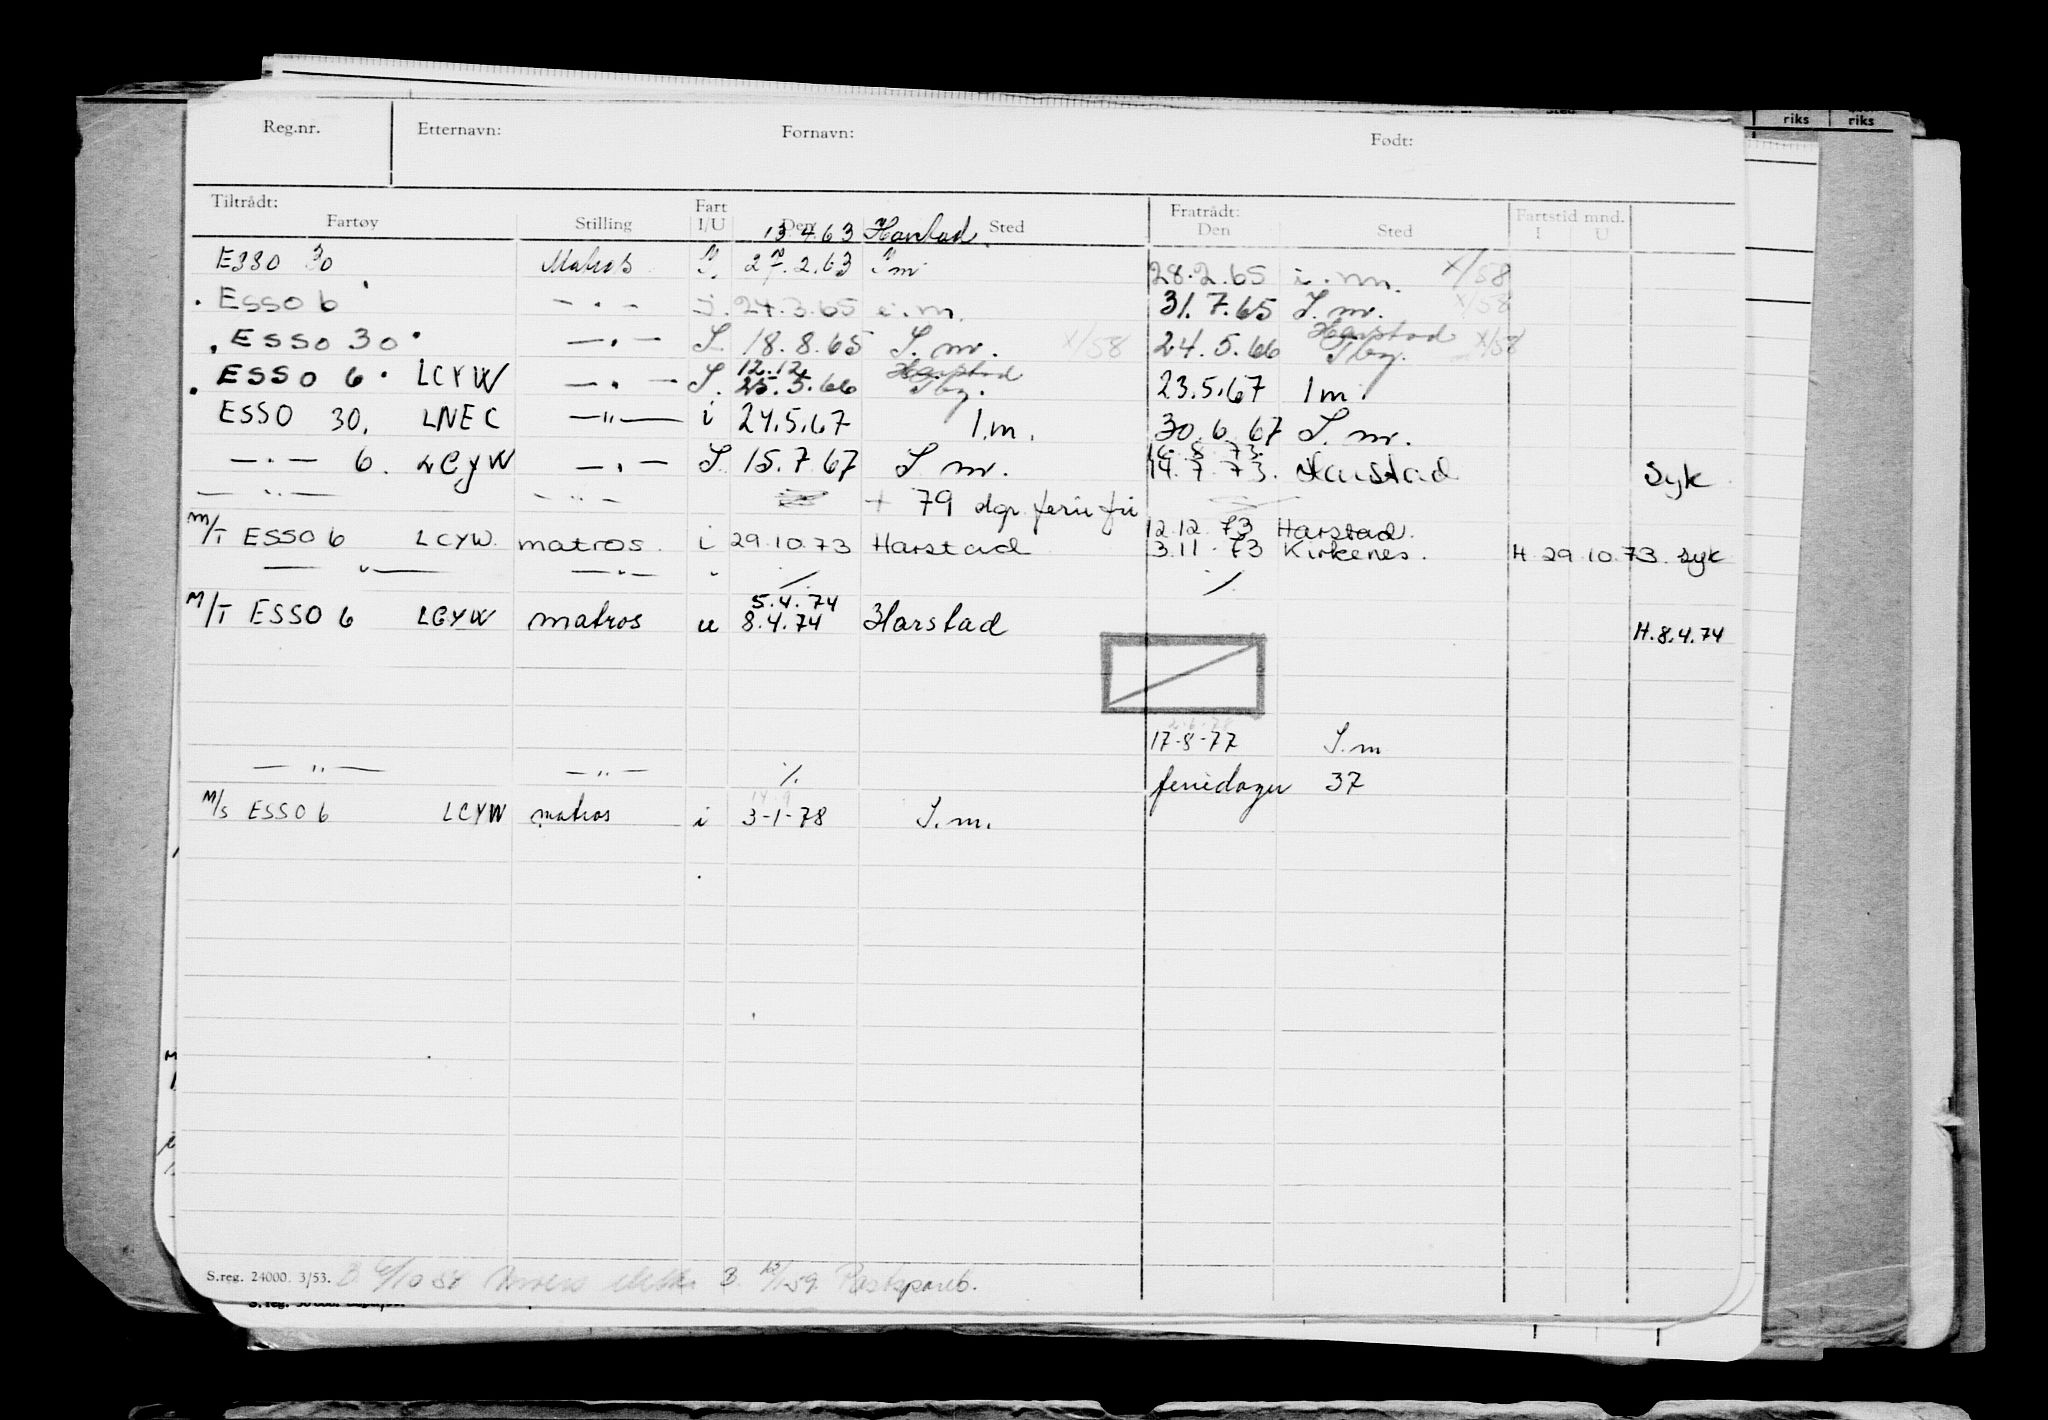 riks riks
Reg.nr. Etternavn: Fornavn: Født:
Tiltrådt: Fartøy Stilling Fart I/U Den Sted Fratrådt: Den Sted Fartstid mnd. I U
13.4.63 Harstad
ESSO 30 Matros 2.63 I m 28.2.65 i.m. x/58
ESSO 6 — . — I. 24.3.65 i.m. 31.7.65 I.m. x/58
ESSO 30 — . — I 18.8.65 I.m. x/58 24.5.66 Harstad x/58
12.12 Harstad
ESSO 6 LCYW — . — I. 25.5.66 23.5.67 I m
ESSO 30. LNEC — " — i 24.5.67 I.m. 30.6.67 I.m.
16.8.73.
— . — 6. LCYW — . — I 15.7.67 I m. 14.7.73. Harstad Syk
— " — — " — + 79 dgr. ferie
12.12.73 Harstad.
M/T ESSO 6 LCYW. matros. i 29.10.73 Harstad 3.11.73 Kirkenes. H 29.10.73. syk
— " — — " — " ٪ ٪
5.4.74
M/T ESSO 6 LCYW matros u 8.4.74 Harstad H.8.4.74
17-8-77 I.m
— " — — " — ٪ feriedager 37
M/S ESSO 6 LCYW matros i 3-1-78 I.m.
S.reg. 24000. 3/53. B. B. Postspareb.